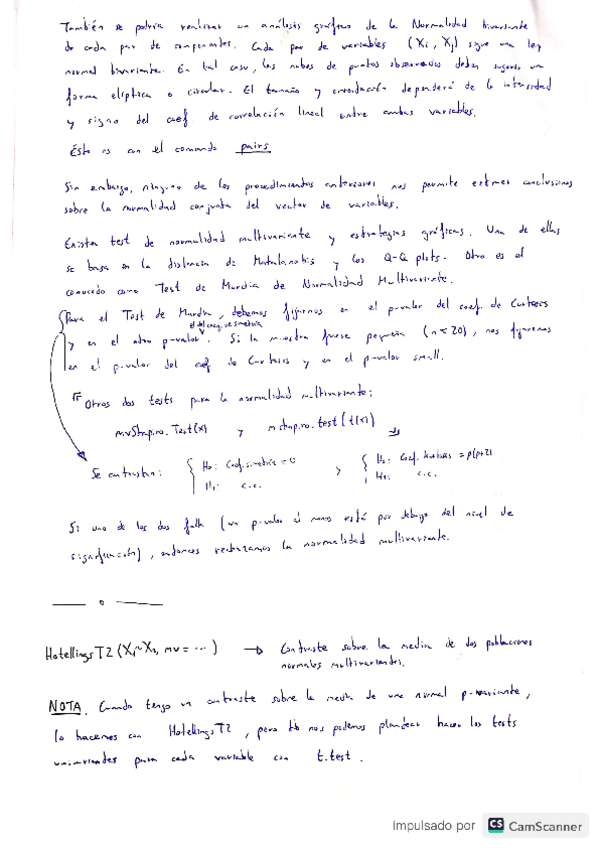 También se podría realizar un análisis gráfico de la Normalidad bivariante
de cada par de componentes. Cada par de variables (Xi, Xj) sigue una ley
normal bivariante. En tal caso, las nubes de puntos observadas deben sugerir una
forma elíptica o circular. El tamaño y orientación dependerá de la intensidad
y signo del coef de correlación lineal entre ambas variables.
Esto es con el comando pairs
Sin embargo, ninguno de los procedimientos anteriores nos permite extraer conclusiones
sobre la normalidad conjunta del vector de variables.
Existen test de normalidad multivariante y estrategias gráficas. Una de ellas
se basa en la distancia de Mahalanobis y los Q-Q plots. Otro es el
conocido como Test de Mardia de Normalidad Multivariante.
Para el Test de Mardia, debemos fijarnos en el p-valor del coef. de Curtosis
y en el otro p-valor. Si la muestra fuese pequeña (n<20), nos fijaremos
el del coef. de simetría
en el p-valor del coef de Curtosis y en el p-valor small.
Otros dos tests para la normalidad multivariante:
mvShapiro.Test(X) y mshapiro.test(t(X))
Se contrastan: H₀: Coef. simetría = 0 y H₀: Coef. Kurtosis = p(p+2)
H₁: c.c. H₁: c.c.
Si uno de los dos falla (un p-valor al menos está por debajo del nivel de
significación), entonces rechazamos la normalidad multivariante.
HotellingsT2 (X₁~X₂, mv = ...) → Contraste sobre la media de dos poblaciones
normales multivariantes.
NOTA. Cuando tengo un contraste sobre la media de una normal p-variante,
lo hacemos con HotellingsT2, pero tb nos podemos plantear hacer los tests
univariantes para cada variable con t.test.
Impulsado por CS CamScanner